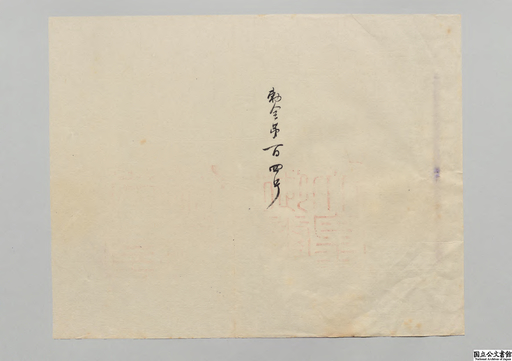 勅令第百四号
国立公文書館
National Archives of Japan